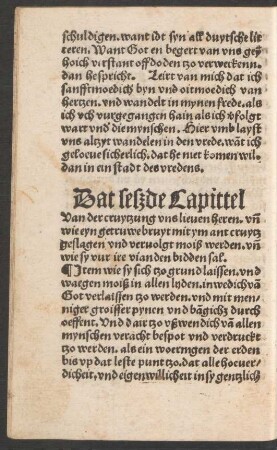 schuldigen. want idt syn all duytsche lit
teren. Want Got en begert van vns geyn
hoich virstant off doden tzo verweckenn.
dan hespricht. Leirt van mich dat ich
sanfftmoedich byn vnd oitmoedich van
hertzen. vnd wandelt in mynen frede. als
ich vch vurgegangen hain als ich vfolgt
wart vnd die mynschen. Hier vmb layst
vns altzyt wandelen in den vrede. wāt ich
geloeue sicherlich. dat he niet komen wil.
dan in ein stadt des vredens.
Dat seszde Capittel
Van der cruytzung vns lieuen heren. vñ
wie eyn getruwe bruyt mit ym ant cruytz
geslagen vnd vervolgt moiß werden. vñ
wie sy vur ire vianden bidden sal.
¶ Item wie sy sich tzo grund laissen. vnd
waegen moiß in allen lyden. inwedich vā
Got verlaissen tzo werden. vnd mit men
niger groisser pynen vnd bāgichz durch
oeffent. Vnd dair tzo vßwendich vā allen
mynschen veracht bespot vnd verdruckt
tzo werden. als ein woermgen der erden
bis vp dat leste punt tzo. dat alle hocuer
dicheit. vnd eigenwillicheit in sy gentzlich